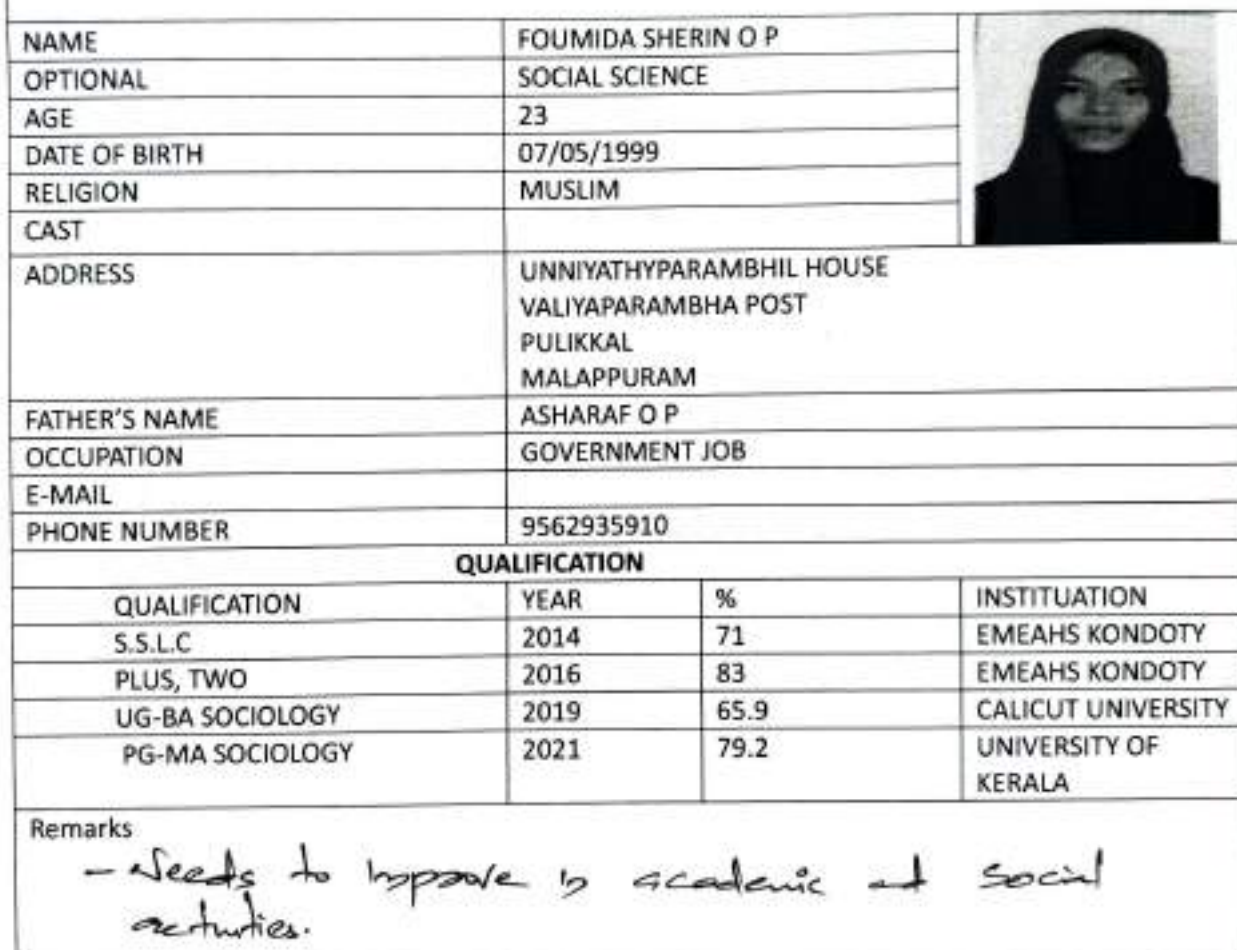 NAME FOUMIDA SHERIN O P
OPTIONAL SOCIAL SCIENCE
AGE 23
DATE OF BIRTH 07/05/1999
RELIGION MUSLIM
CAST
ADDRESS UNNIYATHYPARAMBHIL HOUSE
VALIYAPARAMBHA POST
PULIKKAL
MALAPPURAM
FATHER'S NAME ASHARAF O P
OCCUPATION GOVERNMENT JOB
E-MAIL
PHONE NUMBER 9562935910
QUALIFICATION
QUALIFICATION YEAR % INSTITUATION
S.S.L.C 2014 71 EMEAHS KONDOTY
PLUS, TWO 2016 83 EMEAHS KONDOTY
UG-BA SOCIOLOGY 2019 65.9 CALICUT UNIVERSITY
PG-MA SOCIOLOGY 2021 79.2 UNIVERSITY OF
KERALA
Remarks
- Needs to improve in academic and social
activities.